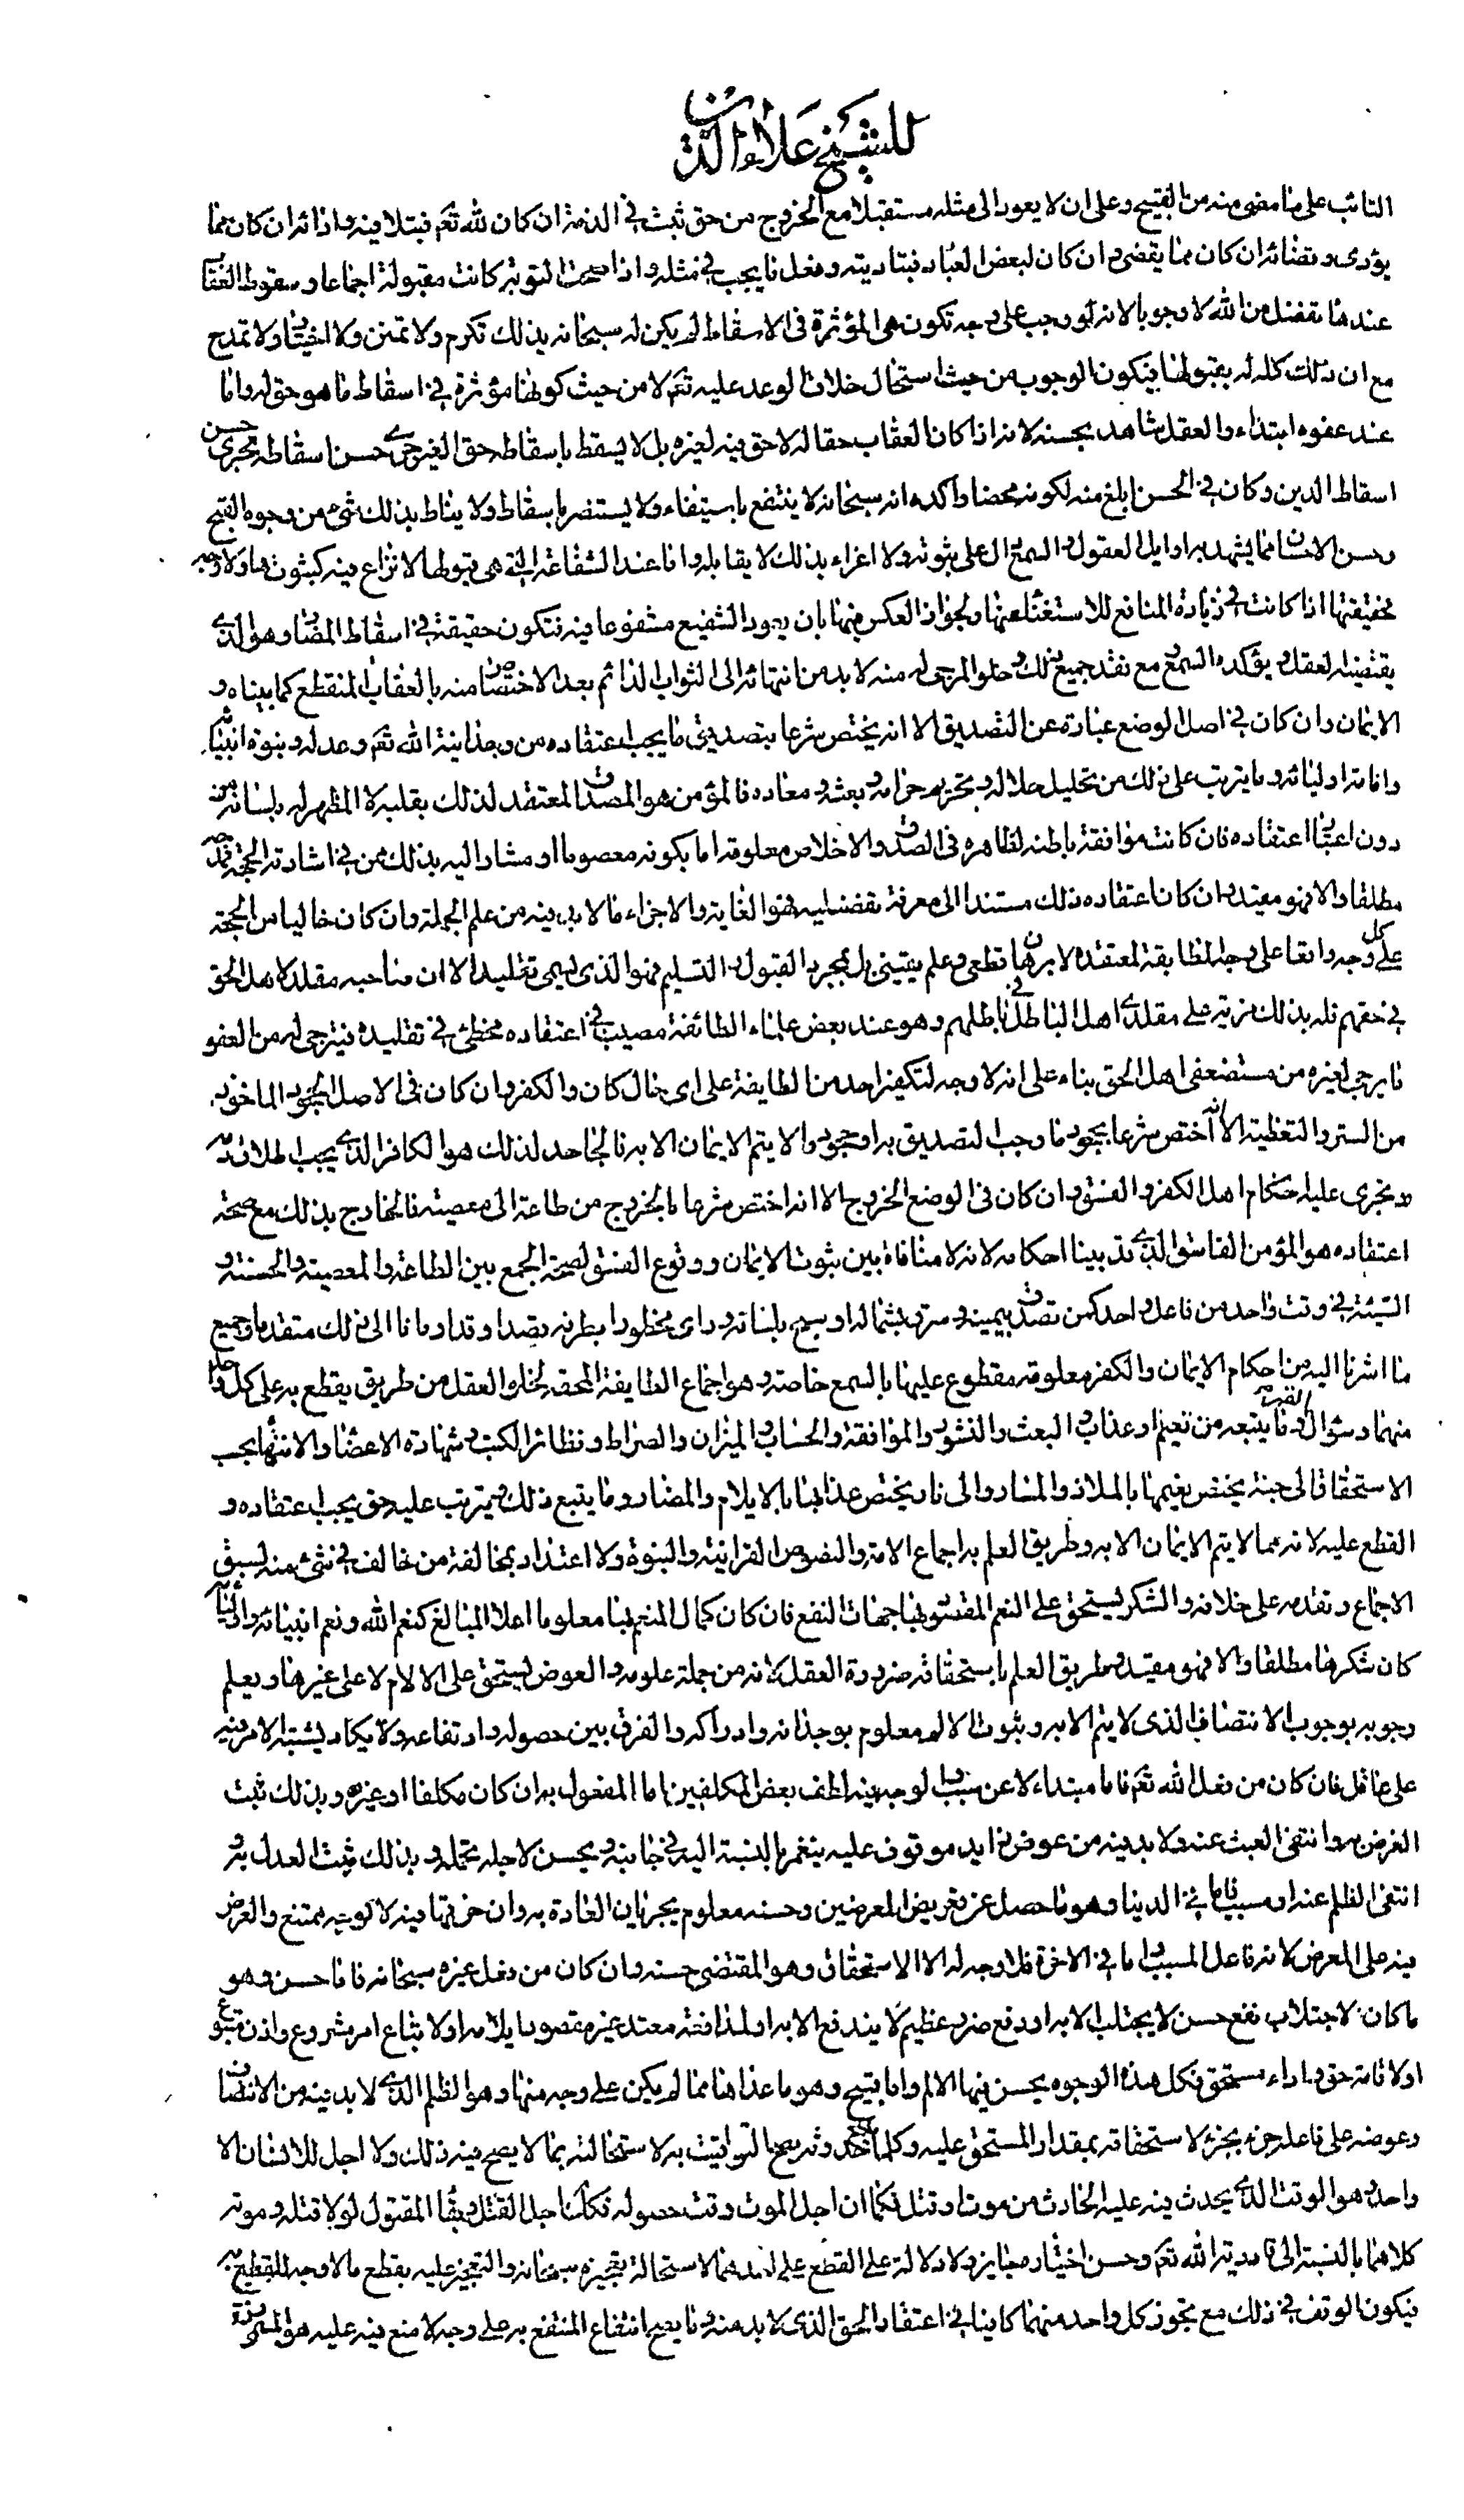 للشيخ علاء الدين
التائب على ما مضى منه من القبيح وعلى ان لا يعود الى مثله مستقبلا مع الخروج من حق ثبت في الذمة ان كان لله تعم فبتلافيه وادائه ان كان مما
يؤدى وقضائه ان كان مما يقضى وان كان لبعض العباد فبتاديته وفعل ما يجب في مثله واذا صحت التوبة كانت مقبولة اجماعا وسقوط العقاب
عندها تفضل من الله لا وجوبا لانه لو وجب على وجه تكون هي المؤثرة في الاسقاط لم يكن له سبحانه بذلك تكرم ولا تمنن ولا اختيار ولا تمدح
مع ان ذلك كله له بقبولها فيكون الوجوب من حيث استحال خلاف الوعد عليه تعم لا من حيث كونها مؤثرة في اسقاط ما هو حق له واما
عند عفوه ابتداء والعقل شاهد بحسنه لانه اذا كان العقاب حقا له لا حق فيه لغيره بل لا يسقط باسقاطه حق الغير جرى حسن اسقاطه مجرى حسن
اسقاط الدين وكان في الحسن ابلغ منه لكونه محضا واكده انه سبحانه لا ينتفع باستيفاء ولا يستضر باسقاط ولا يناط بذلك شيء من وجوه القبح
وحسن الاحسان مما يشهد به اوايل العقول والسمع دال على ثبوته ولا اغراء بذلك لا يقابله واما عند الشفاعة التي هي قبولها لا نزاع فيه كثبوتها ولا وجه
لحقيقتها اذا كانت في زيادة المنافع للاستغناء عنها ولجواز العكس فيها بان يعود الشفيع مشفوعا فيه فتكون حقيقة في اسقاط المضار وهو الذي
يقتضيه العقل ويؤكده السمع مع فقد جميع ذلك وخلو المرجى له منه لا بد من انتهائه الى الثواب الدائم بعد الاختصاص منه بالعقاب المنقطع كما بيناه و
الايمان وان كان في اصل الوضع عبارة عن التصديق الا انه يختص شرعا بتصديق ما يجب اعتقاده من وحدانية الله تعم وعدله ونبوة انبيائه
وامامة اوليائه وما يترتب على ذلك من تحليل حلاله وتحريم حرامه وبعثه ومعاده فالمؤمن هو المصدق المعتقد لذلك بقلبه لا المظهر له بلسانه من
دون اعتبار اعتقاده فان كانت موافقة باطنه لظاهره في الصدق والاخلاص معلومة اما بكونه معصوما او مشارا اليه بذلك ممن في اشارته الحجة
مطلقا والا فهو مقيد وان كان اعتقاده ذلك مستندا الى معرفة تفصيليه فهو الغاية والا جزاء ما لا بد فيه من علم الجملة وان كان خاليا من الحجة
على كل وجه واقعا على وجه المطابقة لمعتقده لا ببرهان قطعي وعلم يقيني بل بمجرد القبول والتسليم فهو الذي يسمى تقليدا الا ان صاحبه مقلد لاهل الحق
في حقهم فله بذلك مزية على مقلدي اهل الباطل في باطلهم وهو عند بعض علماء الطائفة مصيب في اعتقاده مخطئ في تقليده فيترجى له من العفو
ما يرجى لغيره من مستضعفي اهل الحق بناء على انه لا وجه لتكفير احد من الطايفة على اي حال كان والكفر وان كان في الاصل الجحود الماخوذ
من الستر والتغطية الا انه اختص شرعا بجحود ما وجب التصديق به او جحود ما لا يتم الايمان الا به فالجاحد لذلك هو الكافر الذي يجب اطلاق
ويجرى عليه احكام اهل الكفر والفسق وان كان في الوضع الخروج الا انه اختص شرعا بالخروج من طاعة الى معصيته فالخارج بذلك مع صحة
اعتقاده هو المؤمن الفاسق الذي قد بينا احكامه لانه لا منافاة بين ثبوت الايمان ووقوع الفسق لصحة الجمع بين الطاعة والمعصية والحسنة و
السيئة في وقت واحد من فاعل واحد كمن تصدق بيمينه وسرق بشماله او سبح بلسانه وراى محظورا بطرفه قصدا وقد اومانا الى ذلك متقدما وجميع
ما اشرنا اليه من احكام الايمان والكفر معلومة مقطوع عليها بالسمع خاصة وهو اجماع الطايفة المحقة لخلو العقل من طريق يقطع به على كل واحد
منهما وسؤال القبر وما يتبعه من نعيم او عذاب والبعث والنشور والموافقة والحساب والميزان والصراط وتطائر الكتب وشهادة الاعضاء والانتهاء بحسب
الاستحقاق الى جنة يختص نعيمها بالملاذ والمسار والى نار يختص عذابها بالايلام والمضار وما يتبع ذلك ويترتب عليه حق يجب اعتقاده و
القطع عليه لانه مما لا يتم الايمان الا به وطريق العلم به اجماع الامة والنصوص القرانية والنبوة ولا اعتداد بمخالفة من خالف في شئ منه لسبق
الاجماع وتقدمه على خلافه والشكر يستحق على النعم المقصود بها جهات النفع فان كان كمال المنعم بها معلوما اعلا المبالغ كنعم الله ونعم انبيائه واوليائه
كان شكرها مطلقا والا فهو مقيد وطريق العلم باستحقاقه ضرورة العقل لانه من جملة علومه والعوض يستحق على الالام لا على غيرها ويعلم
وجوبه بوجوب الانتصاف الذى لا يتم الا به وثبوت الالم معلوم بوجدانه وادراكه والفرق بين حصوله وارتفاعه ولا يكاد يشتبه الامر فيه
على عاقل فان كان من فعل الله تعم فاما مبتداء لا عن سبب لوجه فيه لطف بعض المكلفين اما المفعول به ان كان مكلفا او غيره وبذلك ثبت
الغرض به وانتفى العبث عنه ولا بد فيه من عوض زايد موقوف عليه ينغمر بالنسبة اليه في جانبه ويحسن لاجله تحمله وبذلك يثبت العدل به و
انتفى الظلم عنه او مسببا اما في الدنيا وهو ما حصل عن تعريض المعرضين وحسنه معلوم بجريان العادة به وان خرقها فيه لا لوجه ممتنع والعوض
فيه على المعرض لانه فاعل السبب واما في الاخرة فلا وجه له الا الاستحقاق وهو المقتضى حسنه وان كان من فعل غيره سبحانه فاما حسن وهو
ما كان لاجتلاب نفع حسن لا يجتلب الا به او دفع ضرر عظيم لا يندفع الا به او لمدافعة معتد غير مقصود ايلامه او لاتباع امر مشروع واذن متبوع
او لاقامة حق واداء مستحق فكل هذه الوجوه يحسن فيها الالم واما قبيح وهو ما عداها مما لم يكن على وجه منها وهو الظلم الذي لا بد فيه من الانتصاف
وعوضه على فاعله جزء بجزء لاستحقاقه بمقدار المستحق عليه وكلما حدوثه يصح التواقيت به لاستحالته بما لا يصح فيه ذلك ولا اجل للانسان الا
واحد وهو الوقت الذي يحدث فيه عليه الحادث من موت او قتل فكما ان اجل الموت وقت حصوله فكذا اجل القتل وبقاء المقتول لولا قتله وموته
كلاهما بالنسبة الى قدرة الله تعم وحسن اختياره جايز ولا دلالة على القطع على احدهما لاستحالة تعجيزه سبحانه والتحجر عليه بقطع ما لا وجه للقطع به
فيكون الوقف في ذلك مع تجوز كل واحد منهما كافيا في اعتقاد الحق الذى لا بد منه وما يصح انتفاع المنتفع به على وجه لا منع فيه عليه هو المسمى